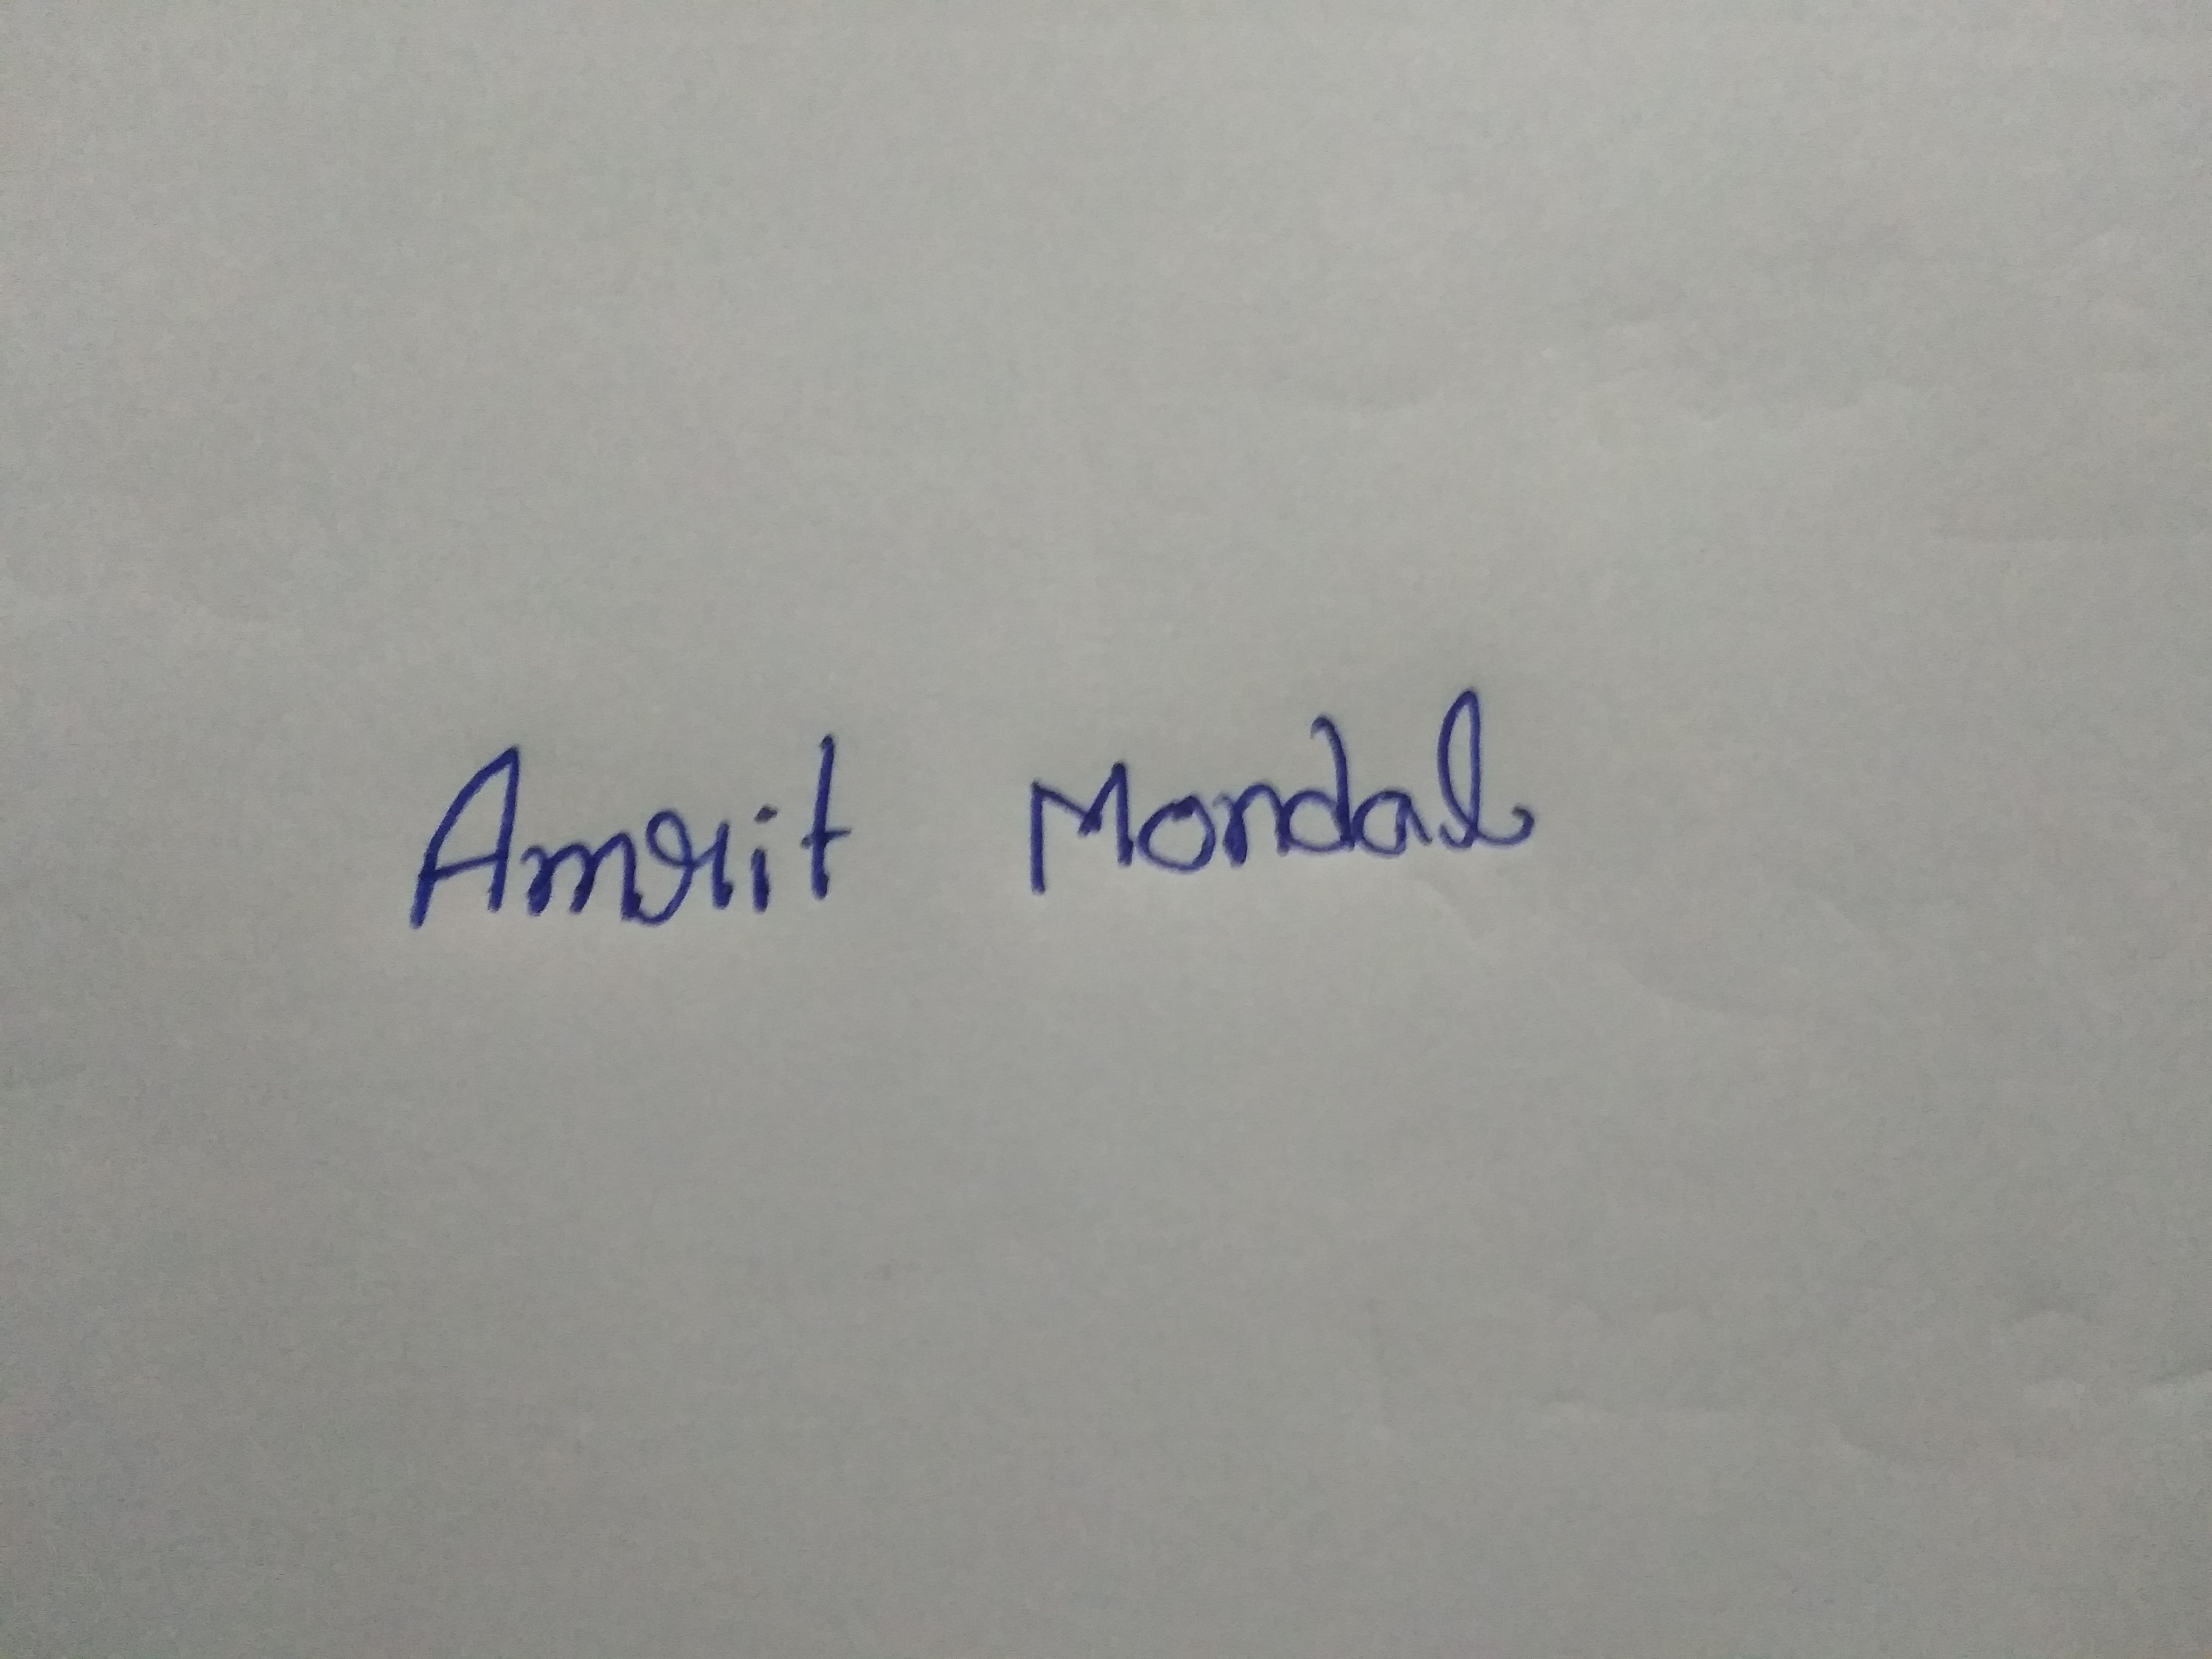 Amrit Mondal